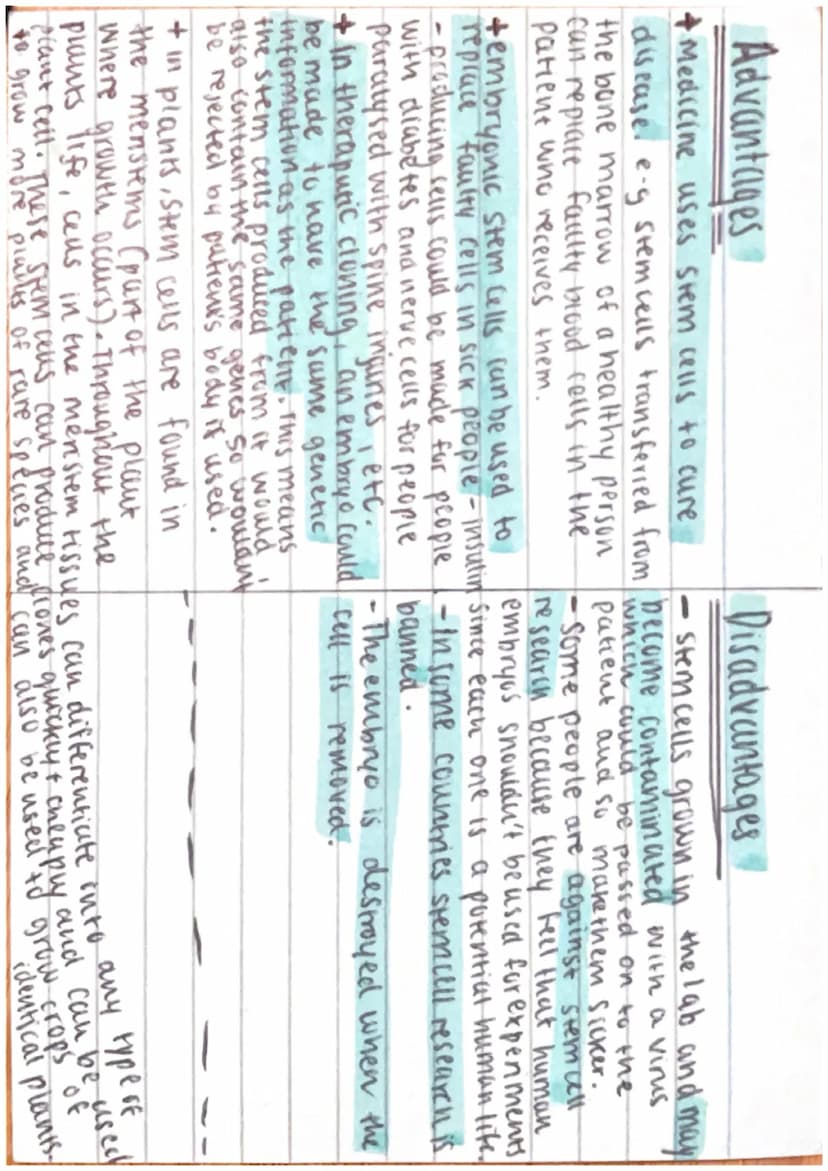 Advantages
+ Medicine uses stem cells to cure
disease e-g stem cells transferred from
the bone marrow of a healthy person
can replace faulty blood cells in the
patient who receives them.
+ embryonic stem cells can be used to
replace faulty cells in sick people - insulin
- producing cells could be made for people
with diabetes and nerve cells for people
paralysed with spine injuries, etc.
+ In therapeutic cloning, an embryo could
be made to have the same genetic
information as the patient. This means
the stem cells produced from it would
also contain the same genes so wouldn't
be rejected by patients body if used.
Disadvantages
- stem cells grown in the lab and may
become contaminated with a virus
which could be passed on to the
patient and so make them sicker.
- Some people are against stem cell
research because they feel that human
embryos shouldn't be used for experiments
since each one is a potential human life.
- In some countries stem cell research is
banned.
- The embryo is destroyed when the
cell is removed.
+ in plants, stem cells are found in
the meristems (part of the plant
where growth occurs). Throughout the
plants life, cells in the meristem tissues can differentiate into any type of
plant cell. These stem cells can produce clones quickly + cheaply and can be used
to grow more plants of rare species and can also be used to grow crops of
identical plants.